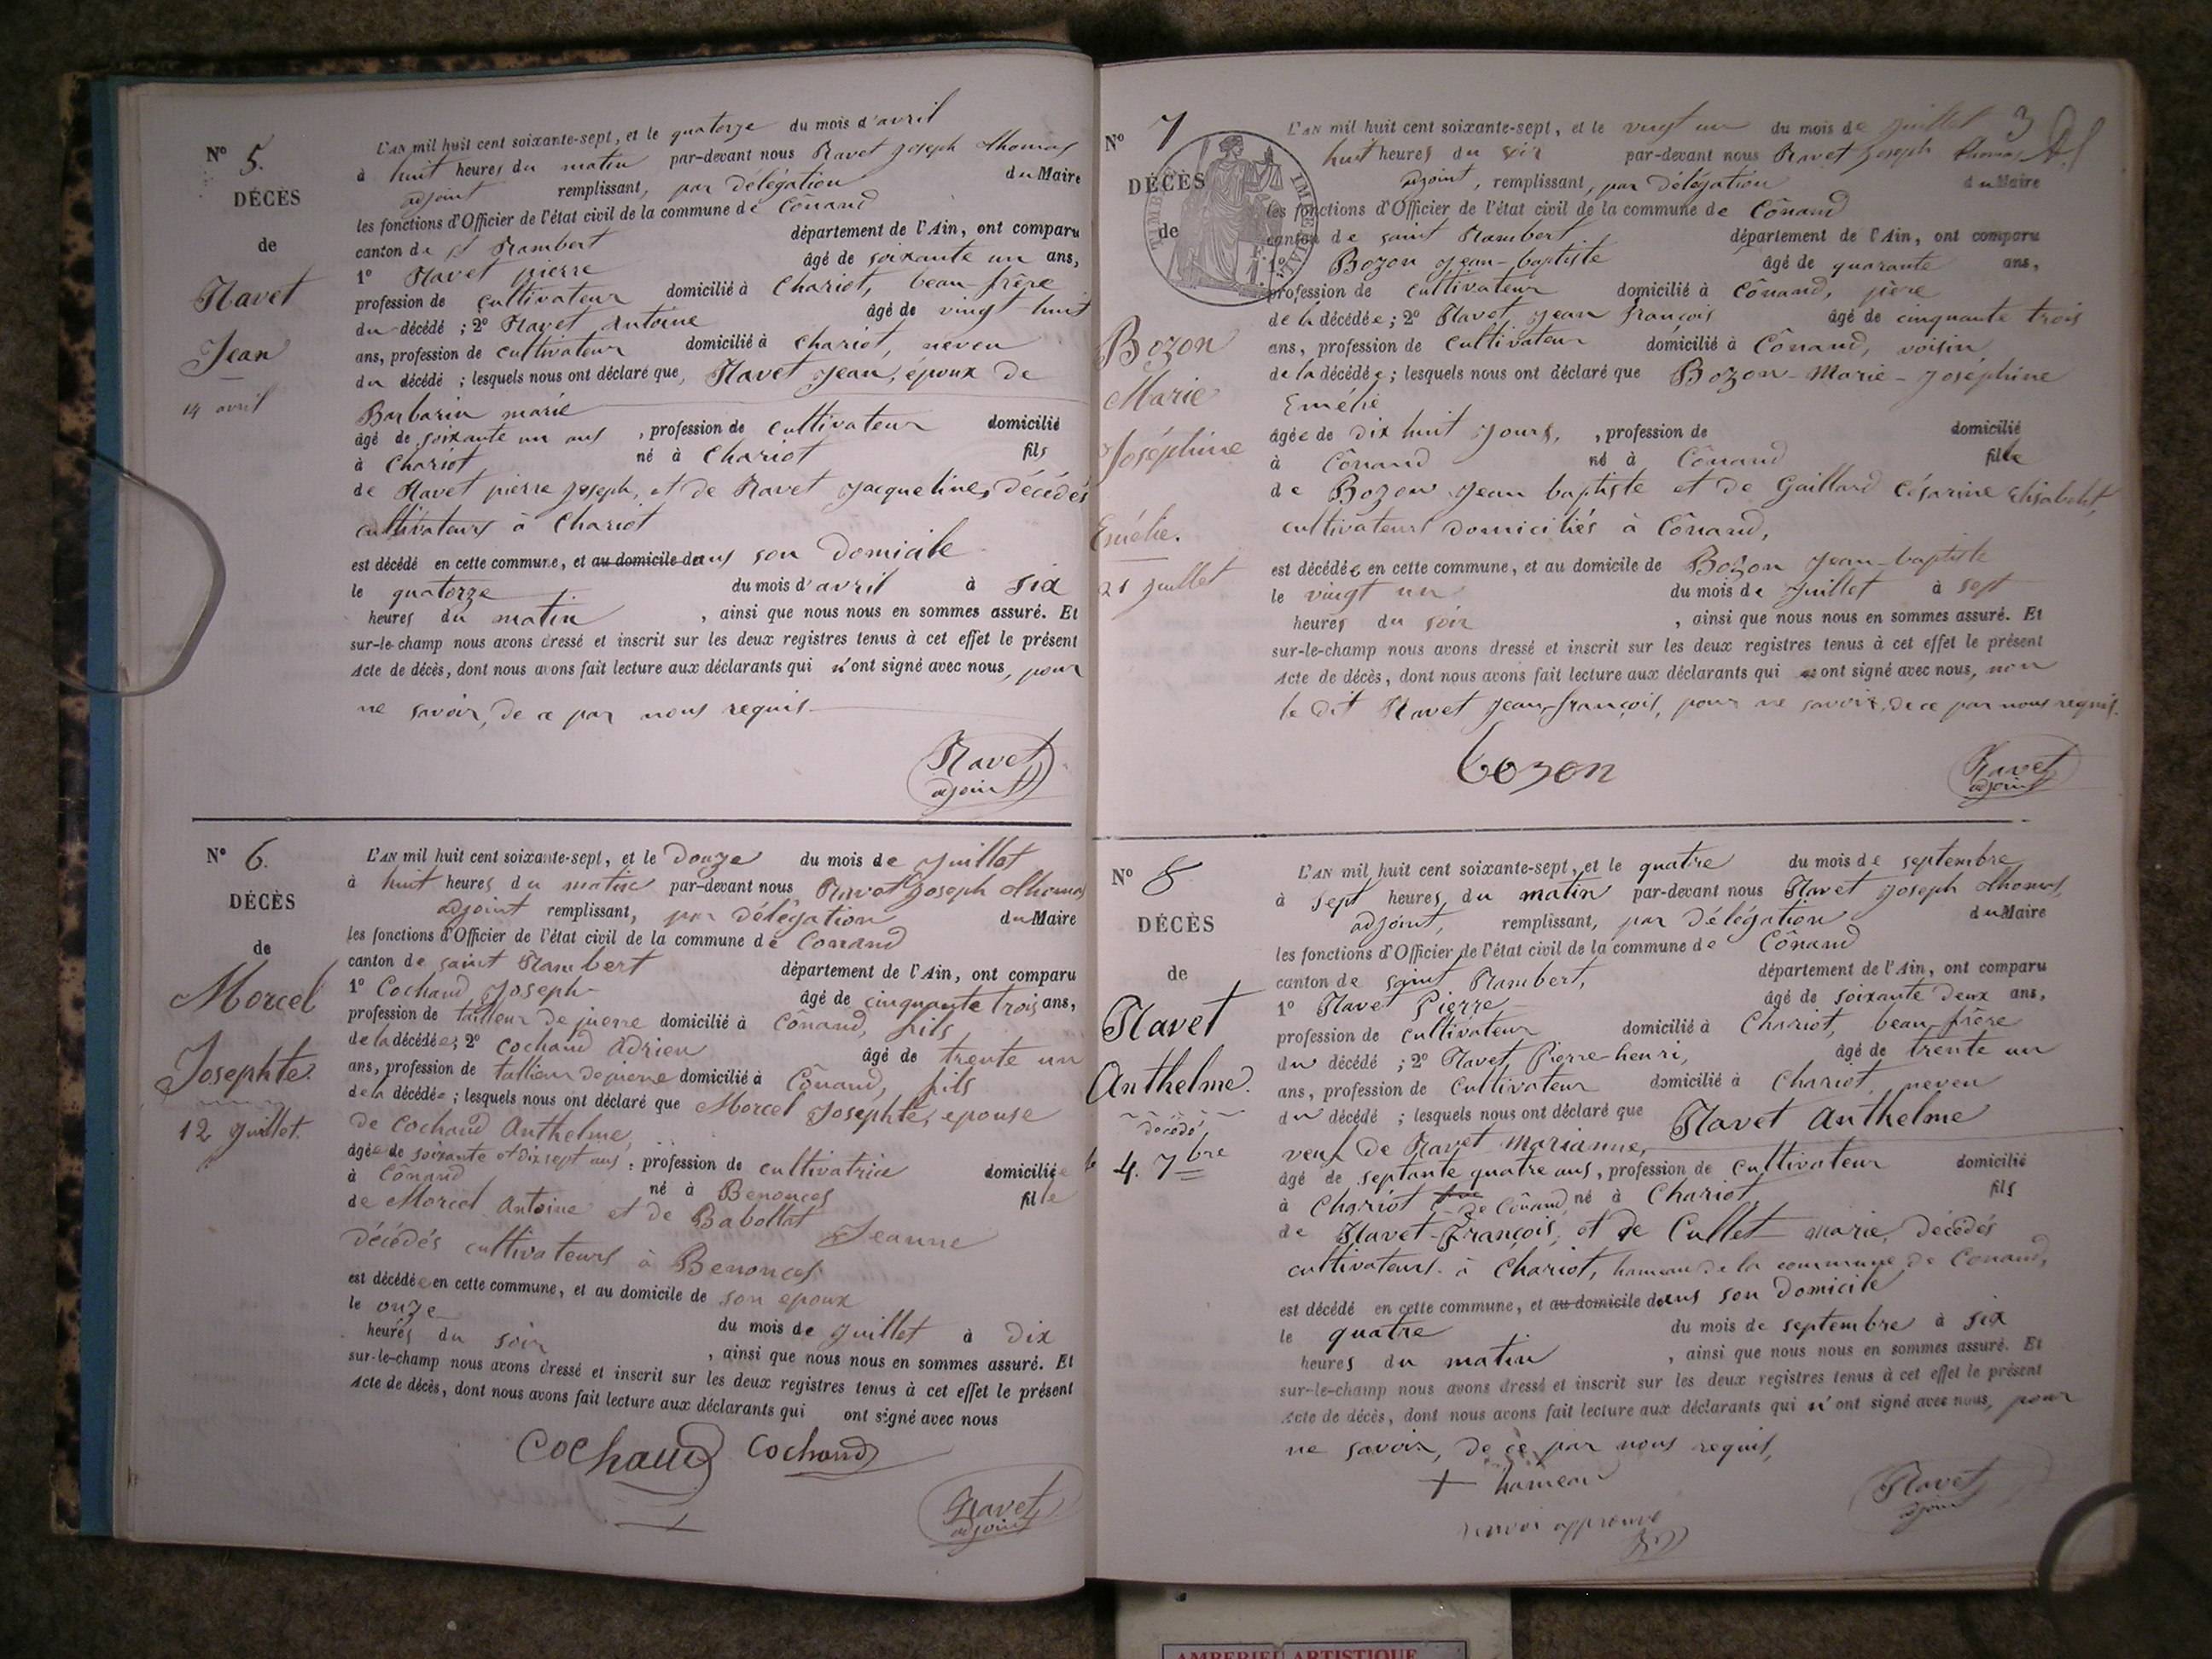 N° 5.
DÉCÈS
de
Ravet
Jean
14 avril
L'AN mil huit cent soixante-sept, et le quatorze du mois d'avril
à huit heures du matin par-devant nous Ravet Joseph Thomas
adjoint remplissant, par délégation du Maire
les fonctions d'Officier de l'état civil de la commune de Cônand
canton de St Rambert département de l'Ain, ont comparu
1° Ravet pierre âgé de soixante un ans,
profession de cultivateur domicilié à Chariot, beau-frère
du décédé ; 2° Ravet Antoine âgé de vingt-huit
ans, profession de cultivateur domicilié à Chariot, neveu
du décédé ; lesquels nous ont déclaré que, Ravet Jean, époux de
Barbarin marie
âgé de soixante un ans, profession de cultivateur domicilié
à Chariot né à Chariot fils
de Ravet pierre Joseph, et de Ravet Jacqueline, décédés
cultivateurs à Chariot
est décédé en cette commune, et au domicile dans son domicile
le quatorze du mois d'avril à six
heures du matin, ainsi que nous nous en sommes assuré. Et
sur-le-champ nous avons dressé et inscrit sur les deux registres tenus à cet effet le présent
Acte de décès, dont nous avons fait lecture aux déclarants qui n'ont signé avec nous, pour
ne savoir, de ce par nous requis
Ravet
adjoint
N° 6.
DÉCÈS
de
Morcel
Josephte.
12 Juillet.
L'AN mil huit cent soixante-sept, et le douze du mois de Juillet
à huit heures du matin par-devant nous Ravet Joseph Thomas
adjoint remplissant, par délégation du Maire
les fonctions d'Officier de l'état civil de la commune de Conand
canton de saint Rambert département de l'Ain, ont comparu
1° Cochand Joseph âgé de cinquante trois ans,
profession de tailleur de pierre domicilié à Cônand, fils
de la décédée ; 2° Cochand Adrien âgé de trente un
ans, profession de taillieur de pierre domicilié à Cônand, fils
de la décédée ; lesquels nous ont déclaré que Morcel Josephte, epouse
de Cochand Anthelme,
âgée de soixante et dix sept ans, profession de cultivatrice domiciliée
à Cônand né à Benonces fille
de Morcel Antoine et de Babollat Jeanne
décédés cultivateurs à Benonces
est décédée en cette commune, et au domicile de son epoux
le onze du mois de Juillet à dix
heures du soir, ainsi que nous nous en sommes assuré. Et
sur-le-champ nous avons dressé et inscrit sur les deux registres tenus à cet effet le présent
Acte de décès, dont nous avons fait lecture aux déclarants qui ont signé avec nous
Cochaud Cochand
Ravet
adjoint
3
N° 7
DÉCÈS
de
TIMBRE IMPERIAL
Bozon
Marie
Joséphine
Emélie.
21 Juillet
L'AN mil huit cent soixante-sept, et le vingt un du mois de Juillet
huit heures du soir par-devant nous Ravet Joseph Thomas
adjoint, remplissant, par délégation du Maire
les fonctions d'Officier de l'état civil de la commune de Cônand
canton de saint Rambert département de l'Ain, ont comparu
1° Bozon Jean-baptiste âgé de quarante ans,
profession de cultivateur domicilié à Cônand, père
de la décédée ; 2° Ravet Jean françois âgé de cinquante trois
ans, profession de cultivateur domicilié à Cônand, voisin
de la décédée ; lesquels nous ont déclaré que Bozon-Marie-Joséphine
Emélie
âgée de dix huit Jours, , profession de domicilié
à Cônand né à Cônand fille
de Bozon Jean baptiste et de Gaillard Césarine Elisabeht,
cultivateurs domiciliés à Cônand,
est décédée en cette commune, et au domicile de Bozon Jean-baptiste
le vingt un du mois de Juillet à sept
heures du soir, ainsi que nous nous en sommes assuré. Et
sur-le-champ nous avons dressé et inscrit sur les deux registres tenus à cet effet le présent
Acte de décès, dont nous avons fait lecture aux déclarants qui ont signé avec nous, non
le dit Ravet Jean-françois, pour ne savoir, de ce par nous requis.
bozon
Ravet
adjoint
N° 8
DÉCÈS
de
Ravet
Anthelme.
décédé
le 4. 7bre
L'AN mil huit cent soixante-sept, et le quatre du mois de septembre
à sept heures, du matin par-devant nous Ravet Joseph Thomas,
adjoint, remplissant, par délégation du Maire
les fonctions d'Officier de l'état civil de la commune de Cônand
canton de saint Rambert, département de l'Ain, ont comparu
1° Ravet Pierre âgé de soixante deux ans,
profession de cultivateur domicilié à Chariot, beau-frère
du décédé ; 2° Ravet Pierre-henri, âgé de trente un
ans, profession de cultivateur domicilié à Chariot, neveu
du décédé ; lesquels nous ont déclaré que Ravet Anthelme
veuf de Ravet Marianne,
âgé de septante quatre ans, profession de cultivateur domicilié
à Chariot de Cônand, né à Chariot, fils
de Ravet-François, et de Cullet marie, décédés
cultivateurs à Chariot, hameau de la commune de Conand,
est décédé en cette commune, et au domicile dans son domicile
le quatre du mois de septembre à six
heures du matin, ainsi que nous nous en sommes assuré. Et
sur-le-champ nous avons dressé et inscrit sur les deux registres tenus à cet effet le présent
Acte de décès, dont nous avons fait lecture aux déclarants qui n'ont signé avec nous, pour
ne savoir, de ce par nous requis,
+ hameau
renvoi approuvé
Ravet
adjoint
AMBERIEU ARTISTIQUE